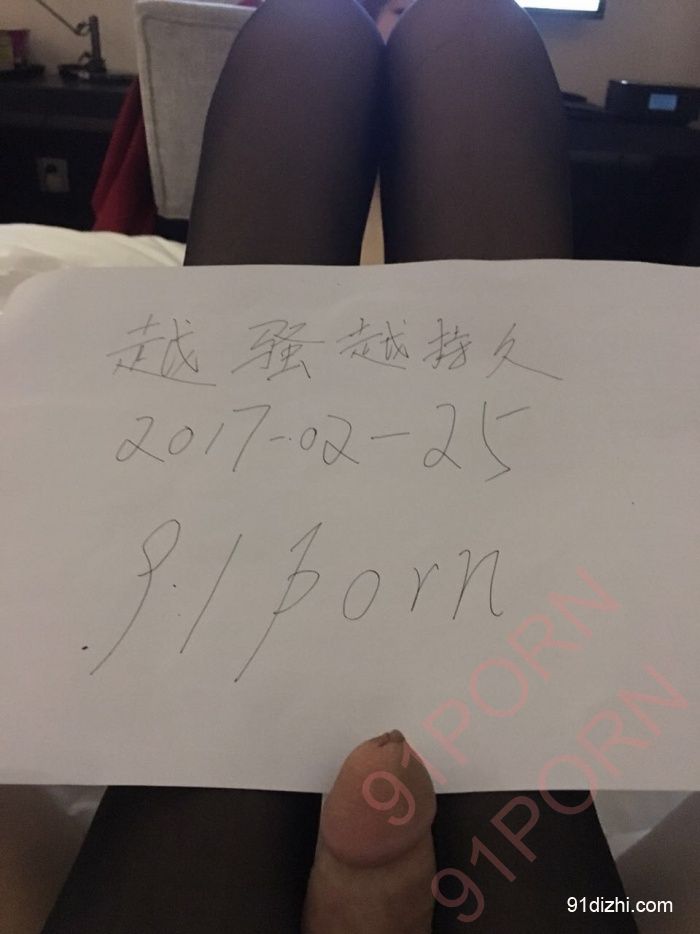 越骚越持久
2017-02-25
91porn
91PORN
91PORN
91dizhi.com